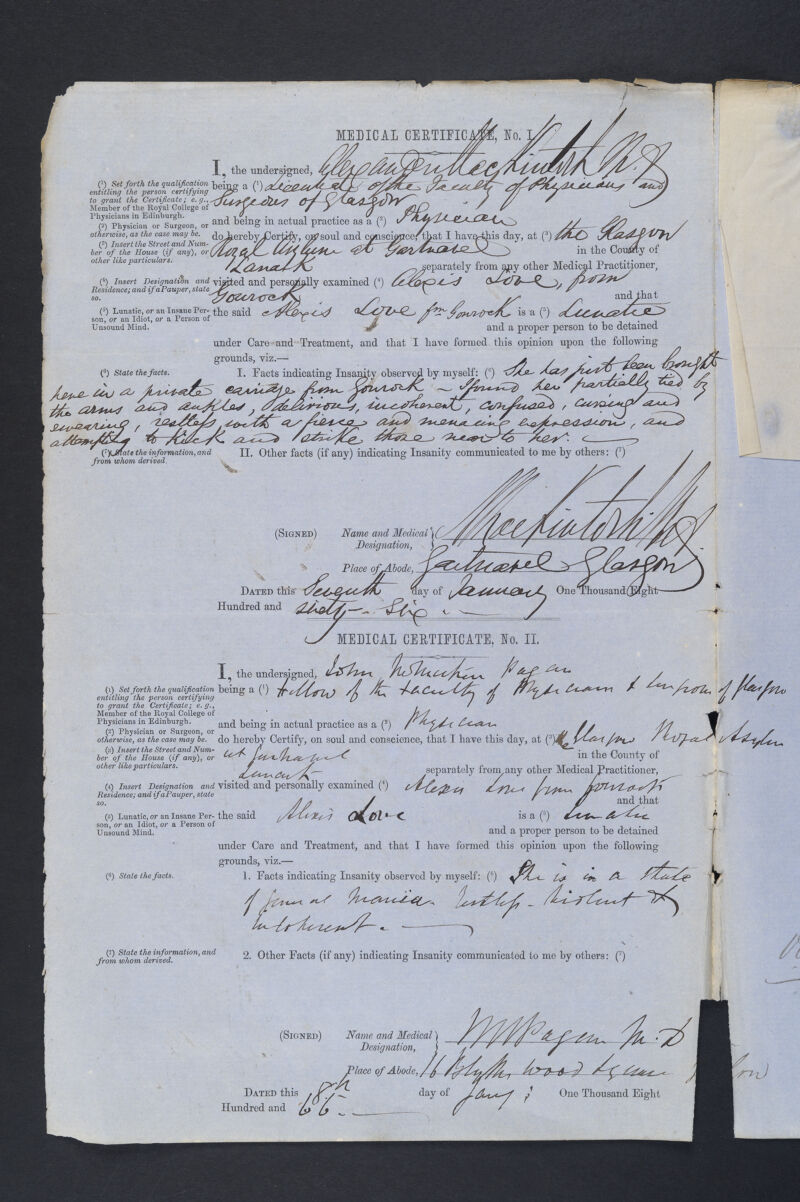 MEDICAL CERTIFICATE, No. I.
I, the undersigned, Alexander Mackintosh M.D
being a (¹) Licentiate of the Faculty of Physicians and
Surgeons of Glasgow
and being in actual practice as a (²) Physician
do hereby Certify, on soul and conscience, that I have this day, at (³) the Glasgow
Royal Asylum at Gartnavel in the County of
Lanark separately from any other Medical Practitioner,
visited and personally examined (⁴) Alexis Love, from
Gourock and that
the said Alexis Love fm Gourock is a (⁵) Lunatic
and a proper person to be detained
under Care and Treatment, and that I have formed this opinion upon the following
grounds, viz.—
I. Facts indicating Insanity observed by myself: (⁶) She has just been brought
here in a private carriage from Gourock – I found her partially tied by
the arms and ankles, delirious, incoherent, confused, cursing and
swearing, restless, with a fierce and menacing expression, and
attempting to kick and strike those near to her.
II. Other facts (if any) indicating Insanity communicated to me by others: (⁷)
(¹) Set forth the qualification
entitling the person certifying
to grant the Certificate; e. g.,
Member of the Royal College of
Physicians in Edinburgh.
(²) Physician or Surgeon, or
otherwise, as the case may be.
(³) Insert the Street and Num-
ber of the House (if any), or
other like particulars.
(⁴) Insert Designation and
Residence; and if a Pauper, state
so.
(⁵) Lunatic, or an Insane Per-
son, or an Idiot, or a Person of
Unsound Mind.
(⁶) State the facts.
(⁷) State the information, and
from whom derived.
(SIGNED) Name and Medical Designation, AMackintosh M.D.
Place of Abode, Gartnavel Glasgow
DATED this Seventh day of January One Thousand Eight
Hundred and sixty-Six.
MEDICAL CERTIFICATE, No. II.
I, the undersigned, John Pagan
being a (¹) Fellow of the Faculty of Physicians & Surgeons of Glasgow
and being in actual practice as a (²) Physician
do hereby Certify, on soul and conscience, that I have this day, at (³) Glasgow Royal Asylum
at Gartnavel in the County of
Lanark separately from any other Medical Practitioner,
visited and personally examined (⁴) Alexis Love from Gourock
and that
the said Alexis Love is a (⁵) Lunatic
and a proper person to be detained
under Care and Treatment, and that I have formed this opinion upon the following
grounds, viz.—
1. Facts indicating Insanity observed by myself: (⁶) She is in a state
of general mania. Restless - violent &
incoherent.
2. Other Facts (if any) indicating Insanity communicated to me by others: (⁷)
(1) Set forth the qualification
entitling the person certifying
to grant the Certificate; e. g.,
Member of the Royal College of
Physicians in Edinburgh.
(2) Physician or Surgeon, or
otherwise, as the case may be.
(3) Insert the Street and Num-
ber of the House (if any), or
other like particulars.
(4) Insert Designation and
Residence; and if a Pauper, state
so.
(5) Lunatic, or an Insane Per-
son, or an Idiot, or a Person of
Unsound Mind.
(6) State the facts.
(7) State the information, and
from whom derived.
(SIGNED) Name and Medical Designation, Pagan M.D
Place of Abode, 16 Blythswood Square
DATED this 8th day of Jany: One Thousand Eight
Hundred and 66.